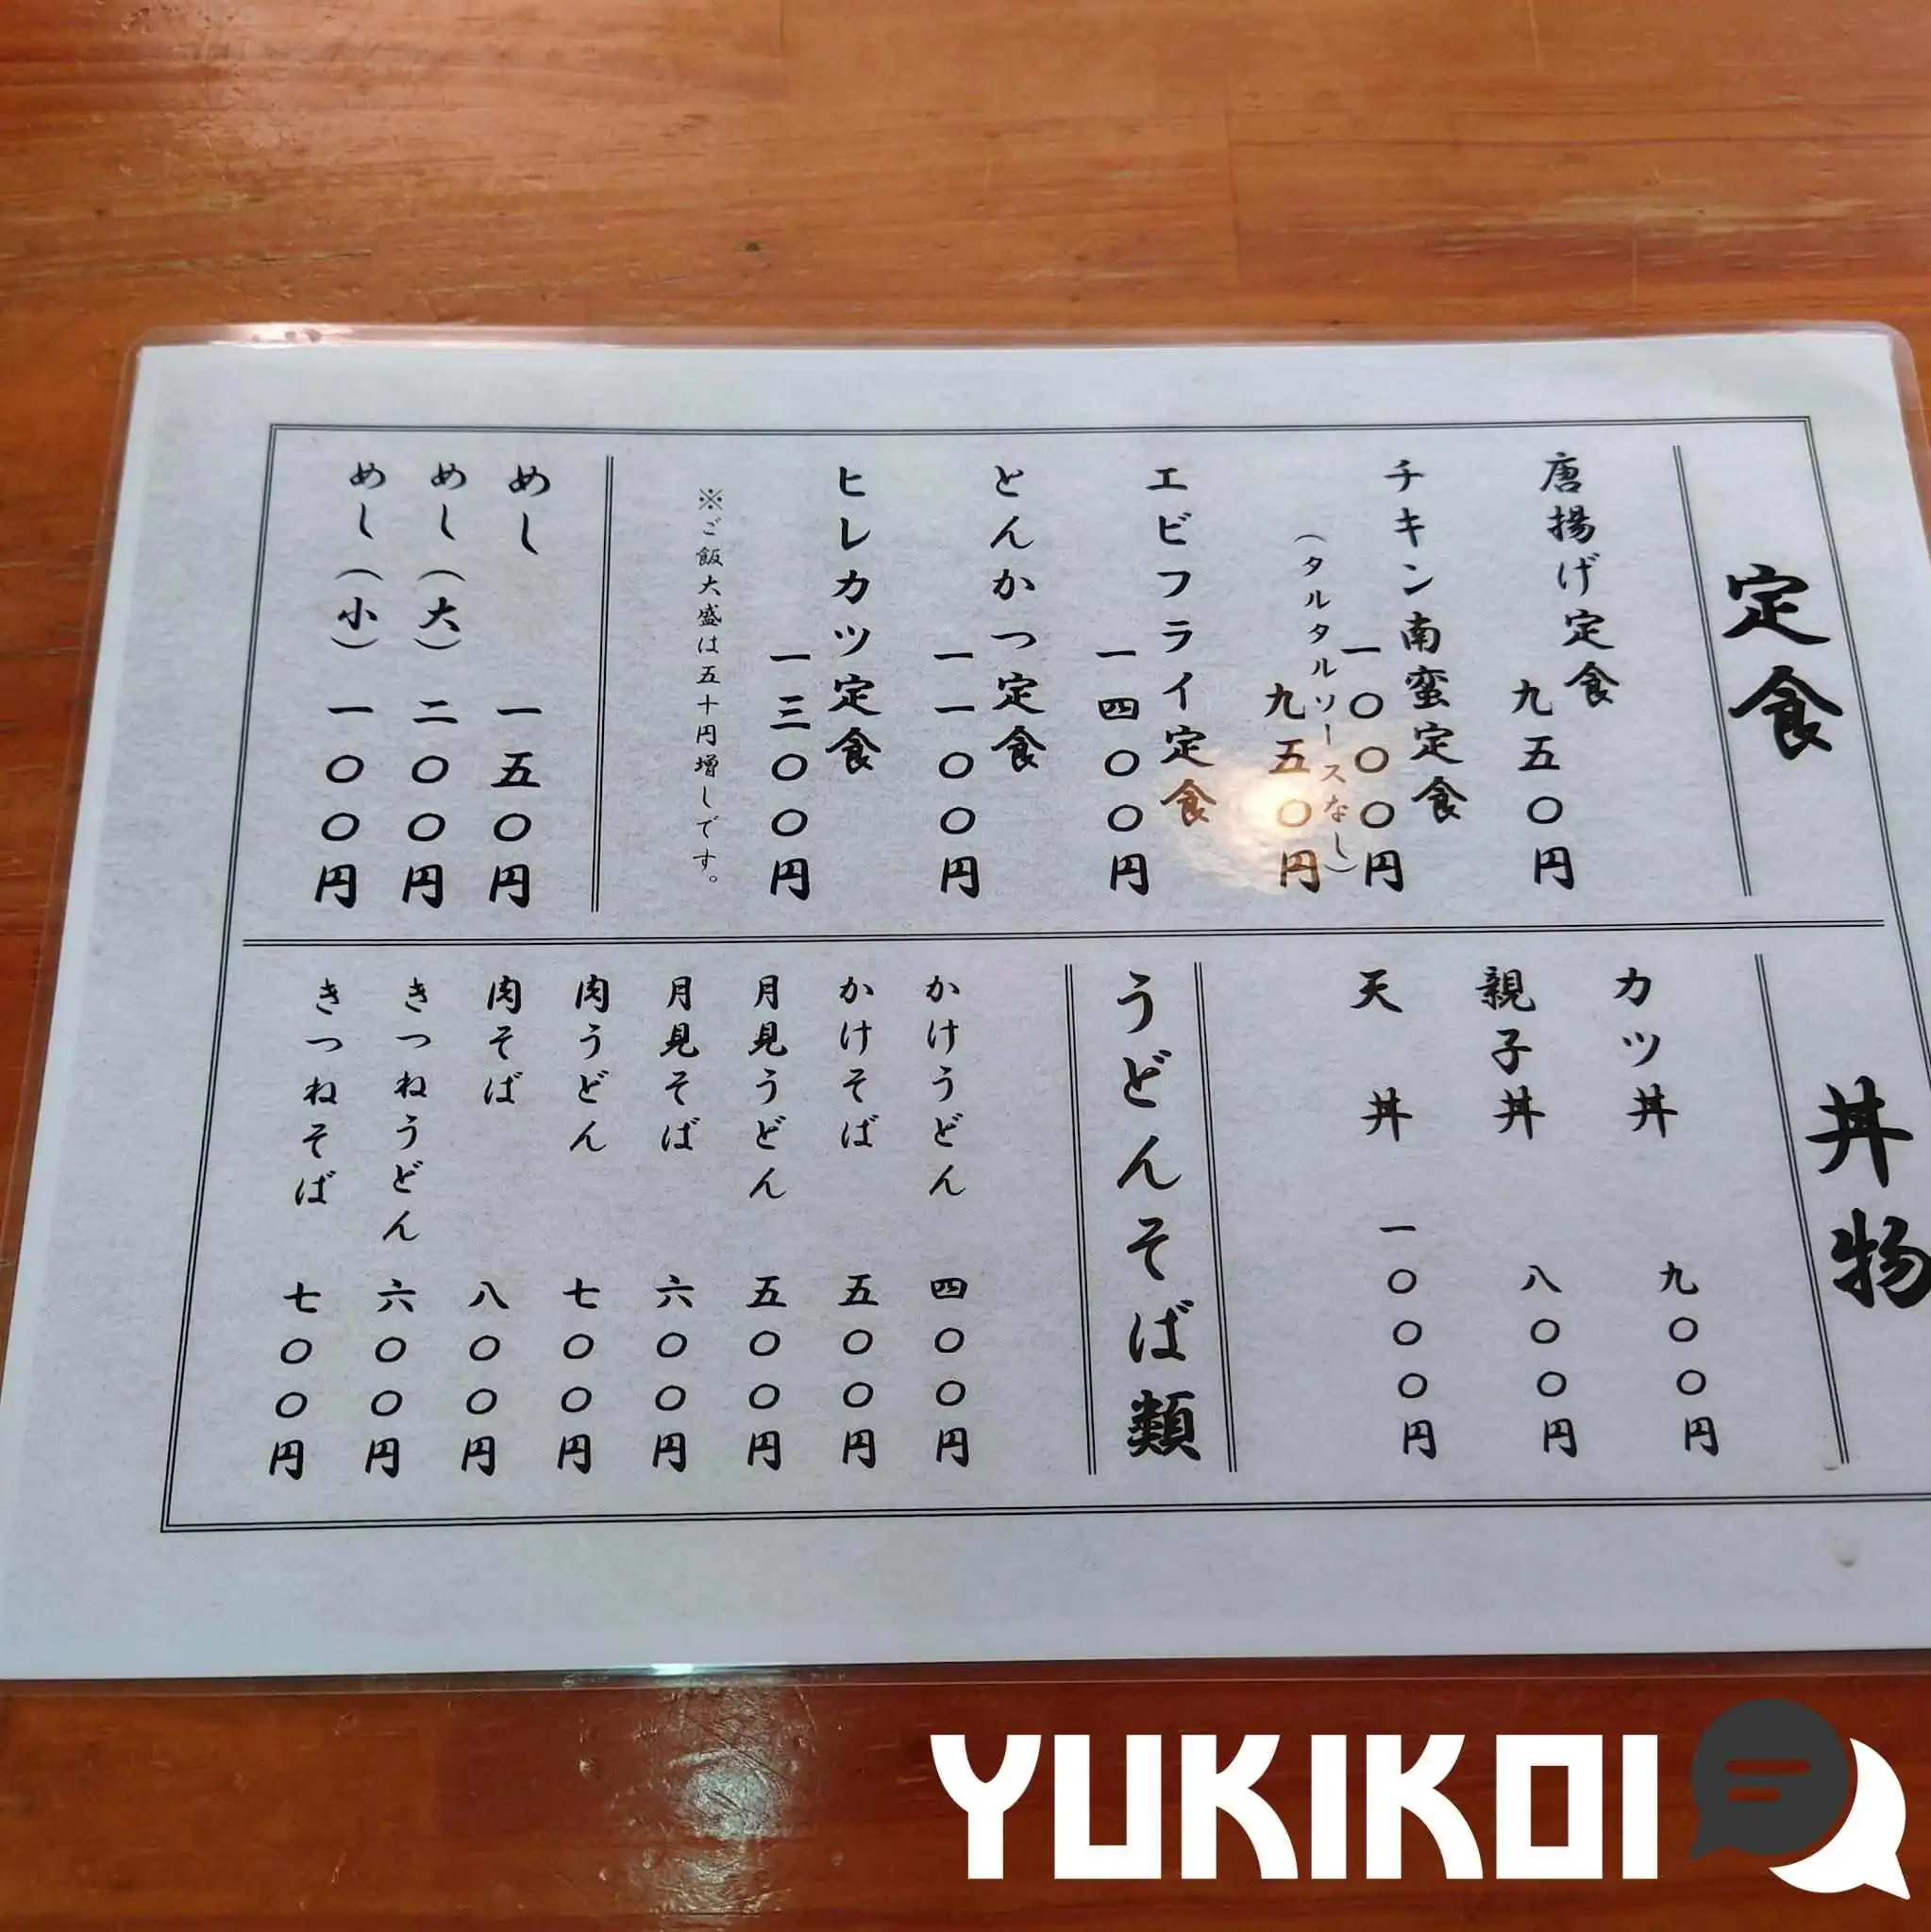 定食
唐揚げ定食
九五〇円
チキン南蛮定食
一〇〇〇円
(タルタルソースなし)
九五〇円
エビフライ定食
一四〇〇円
とんかつ定食
一一〇〇円
ヒレカツ定食
一三〇〇円
※ご飯大盛は五十円増しです。
めし 一五〇円
めし(大) 二〇〇円
めし(小) 一〇〇円
丼物
カツ丼 九〇〇円
親子丼 八〇〇円
天丼 一〇〇〇円
うどんそば類
かけうどん 四〇〇円
かけそば 五〇〇円
月見うどん 五〇〇円
月見そば 六〇〇円
肉うどん 七〇〇円
肉そば 八〇〇円
きつねうどん 六〇〇円
きつねそば 七〇〇円
YUKIKOI